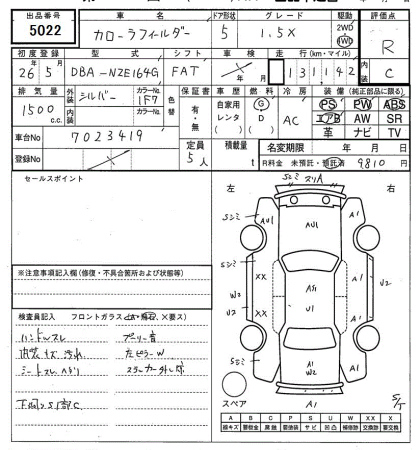 出品番号 車名 ドア形状 グレード 駆動 評価点
5022 カローラフィルダー 5 1.5X 2WD 4WD R
初度登録 型式 シフト 車検 走行(km・マイル) 内装
26年5月 DBA-NZE164G FAT 131,142 C
排気量 外装 シルバー カラーNo. 1F7 色替 保証書 車歴 燃料 冷房 装備(純正部品に限る)
1500 c.c. 内装 カラーNo. 有・無 自家用 レンタ G D AC PS PW ABS
エアB AW SR
革 ナビ TV
車台No 7023419 定員 5人 積載量 t 名変期限 年 月 日
登録No R料金 未預託・預託済 9810円
セールスポイント
左 右
※注意事項記入欄(修復・不具合箇所および状態等)
検査員記入 フロントガラス(A・飛石、×要ス)
ハンドルスレ プーリー音
内装キズ汚れ 左ピラーW
シートスレヘタリ
S
A1
AU1
A1
XX
XX
W2
U2
A1
U1
U2
A1
A1
W2
A1
A1
スペア
S/T
A B C P S U W X XX
線キズ 要板金 腐蝕 要塗装 サビ 凹凸 補修跡 要交換